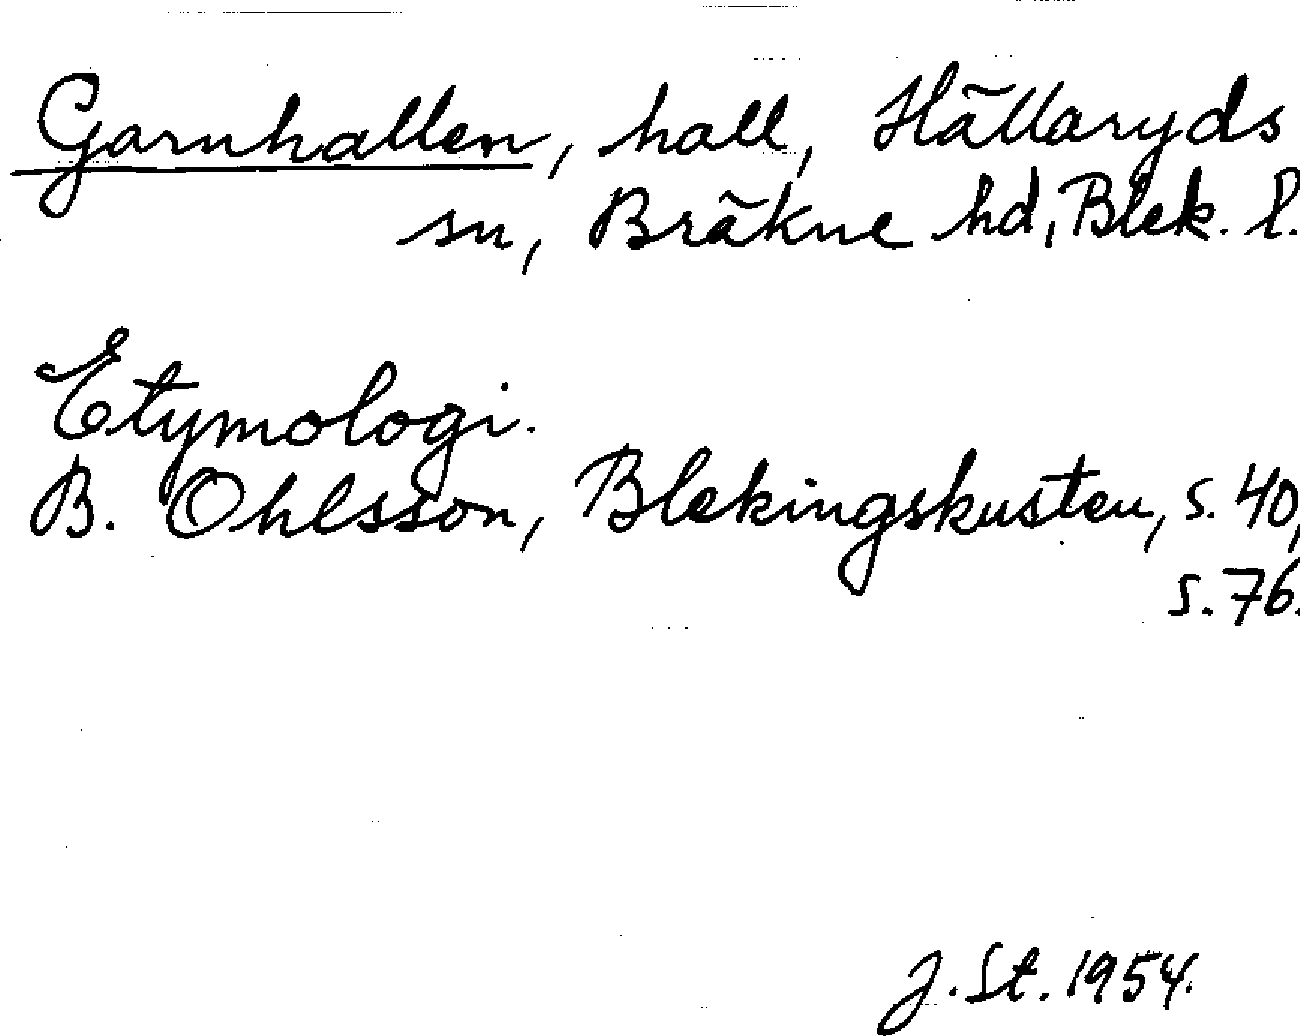 Garnhallen, hall, Hällaryds
sn, Bräkne hd, Blek. l.
Etymologi.
B. Ohlsson, Blekingskusten, s. 40,
s. 76.
J. St. 1954.